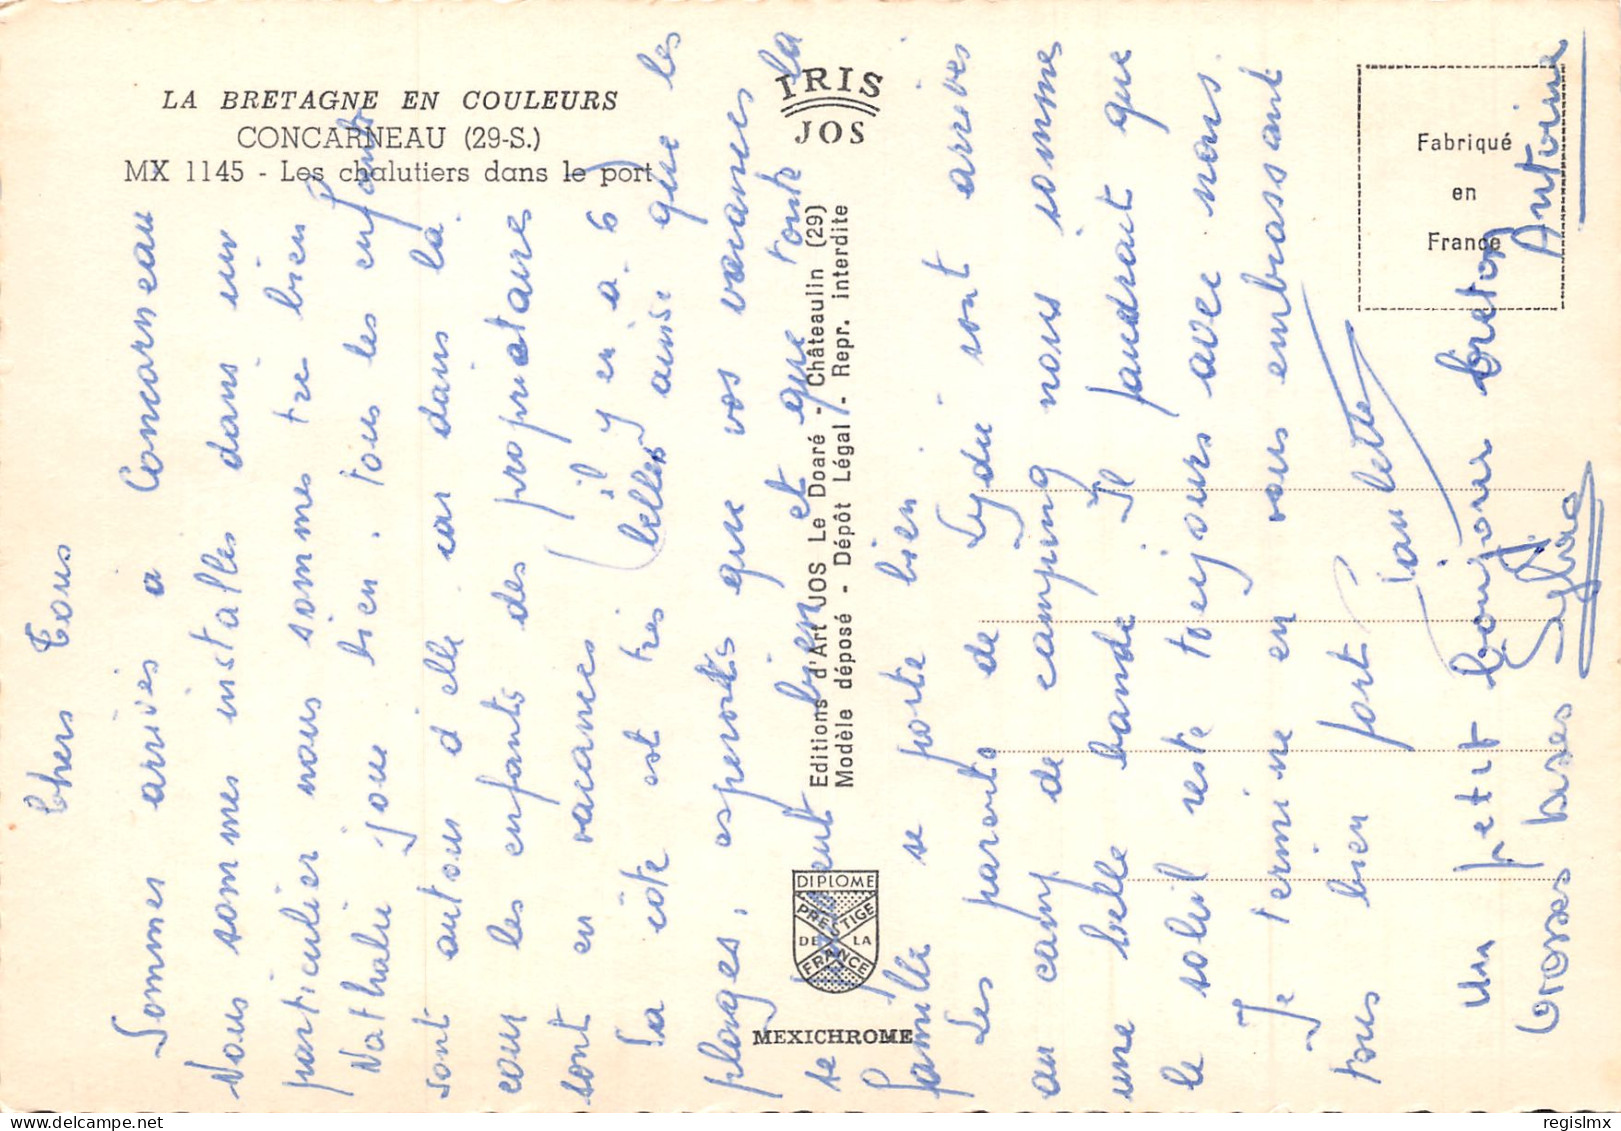 LA BRETAGNE EN COULEURS
CONCARNEAU (29-S.)
MX 1145 - Les chalutiers dans le port
IRIS
JOS
Fabriqué
en
France
Editions d'Art JOS Le Doaré - Châteaulin (29)
Modèle déposé - Dépôt Légal - Repr. interdite
DIPLOME
PRESTIGE
DE LA
FRANCE
MEXICHROME
Chers Tous
Sommes arrivés a Concarneau
Nous sommes installes dans un
particulier nous sommes tre bien
Nathalie joue bien. tous les enfants
sont autour d elle car dans la
cour les enfants des propriétaires
sont en vacances (il y en a 6)
La côte est très belles ainsi que les
plages, esperons que vos vacances
se passent bien et que toute la
famille se porte bien
Les parents de Lydie sont arrives
au camp de camping nous somme
une belle bande Il faudrait que
le soleil reste toujours avec nous.
Je termine en vous embrassant
tous bien fort
un petit bonjour breton
Grosses bises Sylvie Antoine
regislmx